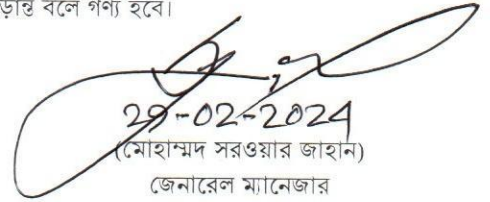 বলে গণ্য হবে।
29-02-2024
(মোহাম্মদ সরওয়ার জাহান)
জেনারেল ম্যানেজার